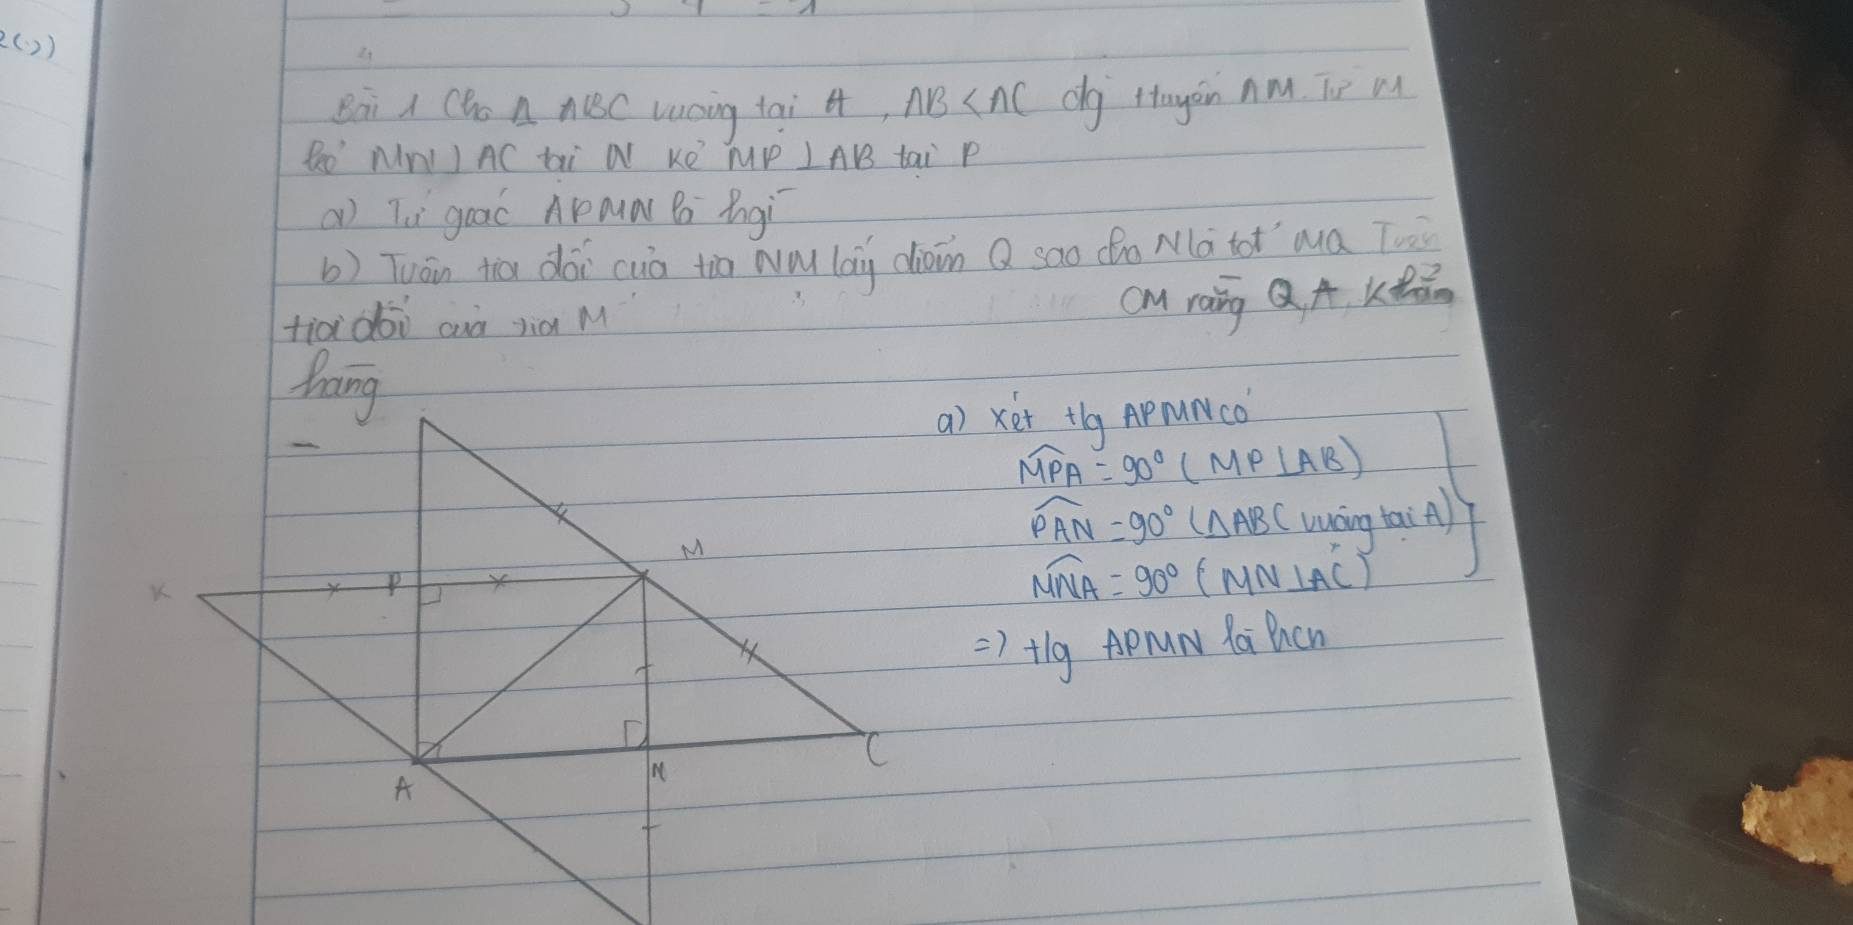 2(2)
Bài 1 Cho Δ ABC vuông tại A, AB < AC đg ttuyến AM. Từ M
kẻ MN ⊥ AC tại N kẻ MP ⊥ AB tại P
a) Tứ goác APMN là hgì
b) Tuên tia đối của tia NM lấy điểm Q sao cho N là tđt MQ Tuên
tia đối của tia M CM rằng Q, A, K thẳng
hàng
a) Xét t/g APMN có
MPA = 90° (MP ⊥ AB)
PAN = 90° (ΔABC vuông tại A)
MNA = 90° (MN ⊥ AC)
=) t/g APMN là hcn
M
K
P
A
N
C